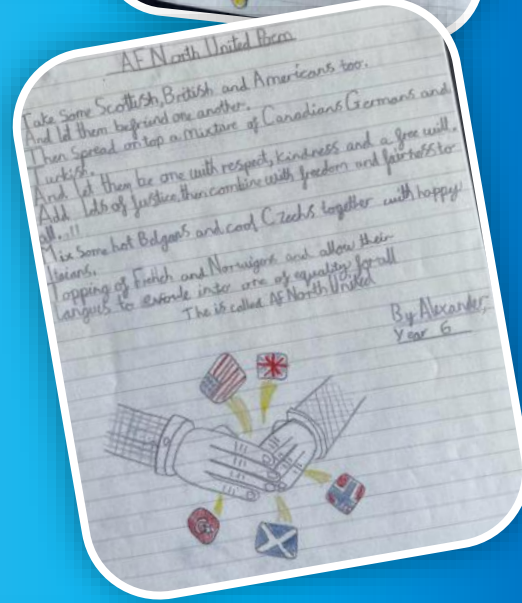 AF North United Poem
Take Some Scottish, British and Americans too.
And let them befriend one another.
Then Spread on top a mixture of Canadians Germans and
Turkish.
And let them be one with respect, kindness and a free will.
Add lots of Justice, then combine with freedom and fairness to
all..!!
Mix Some hot Belgans and cool Czechs together with happy
Topping of French and Norwigans and allow their
to into one of equality for all
The is called AF North United
By Alexander,
Year 6